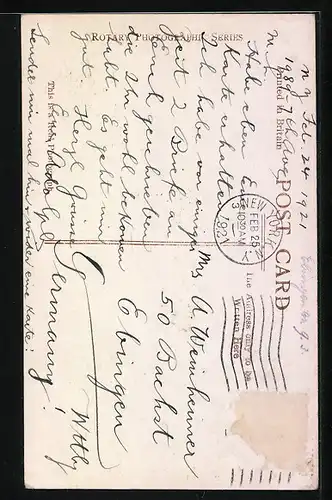 ROTARY PHOTOGRAPHIC SERIES
This is a Real Photograph
Printed in Britain
POST CARD
The Address only to be
Written Here
NEW YORK
FEB 25
10 30 AM
1921
N.Y. Feb. 24 1921
189-7th Ave
Habe eben
Karte erhalten
Ich habe vor einiger
Zeit 2 Briefe an
Euch geschrieben
die Ihr wohl bekommen
habt. Es geht mir
gut. Herzl. Grüsse
Sendet mir mal hin u. wieder eine Karte!
Mrs A. Weinheimer
50 Bachst
Ebingen
Wttbg
Germany!